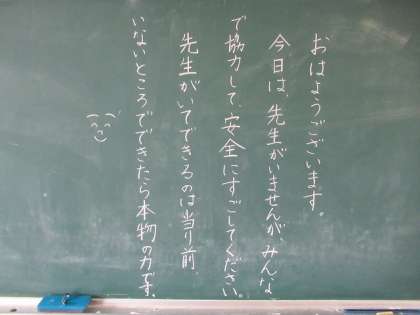 おはようございます。
今日は、先生がいませんが、みんな
で協力して、安全にすごしてください。
先生がいてできるのは当り前。
いないところでできたら本物の力です。